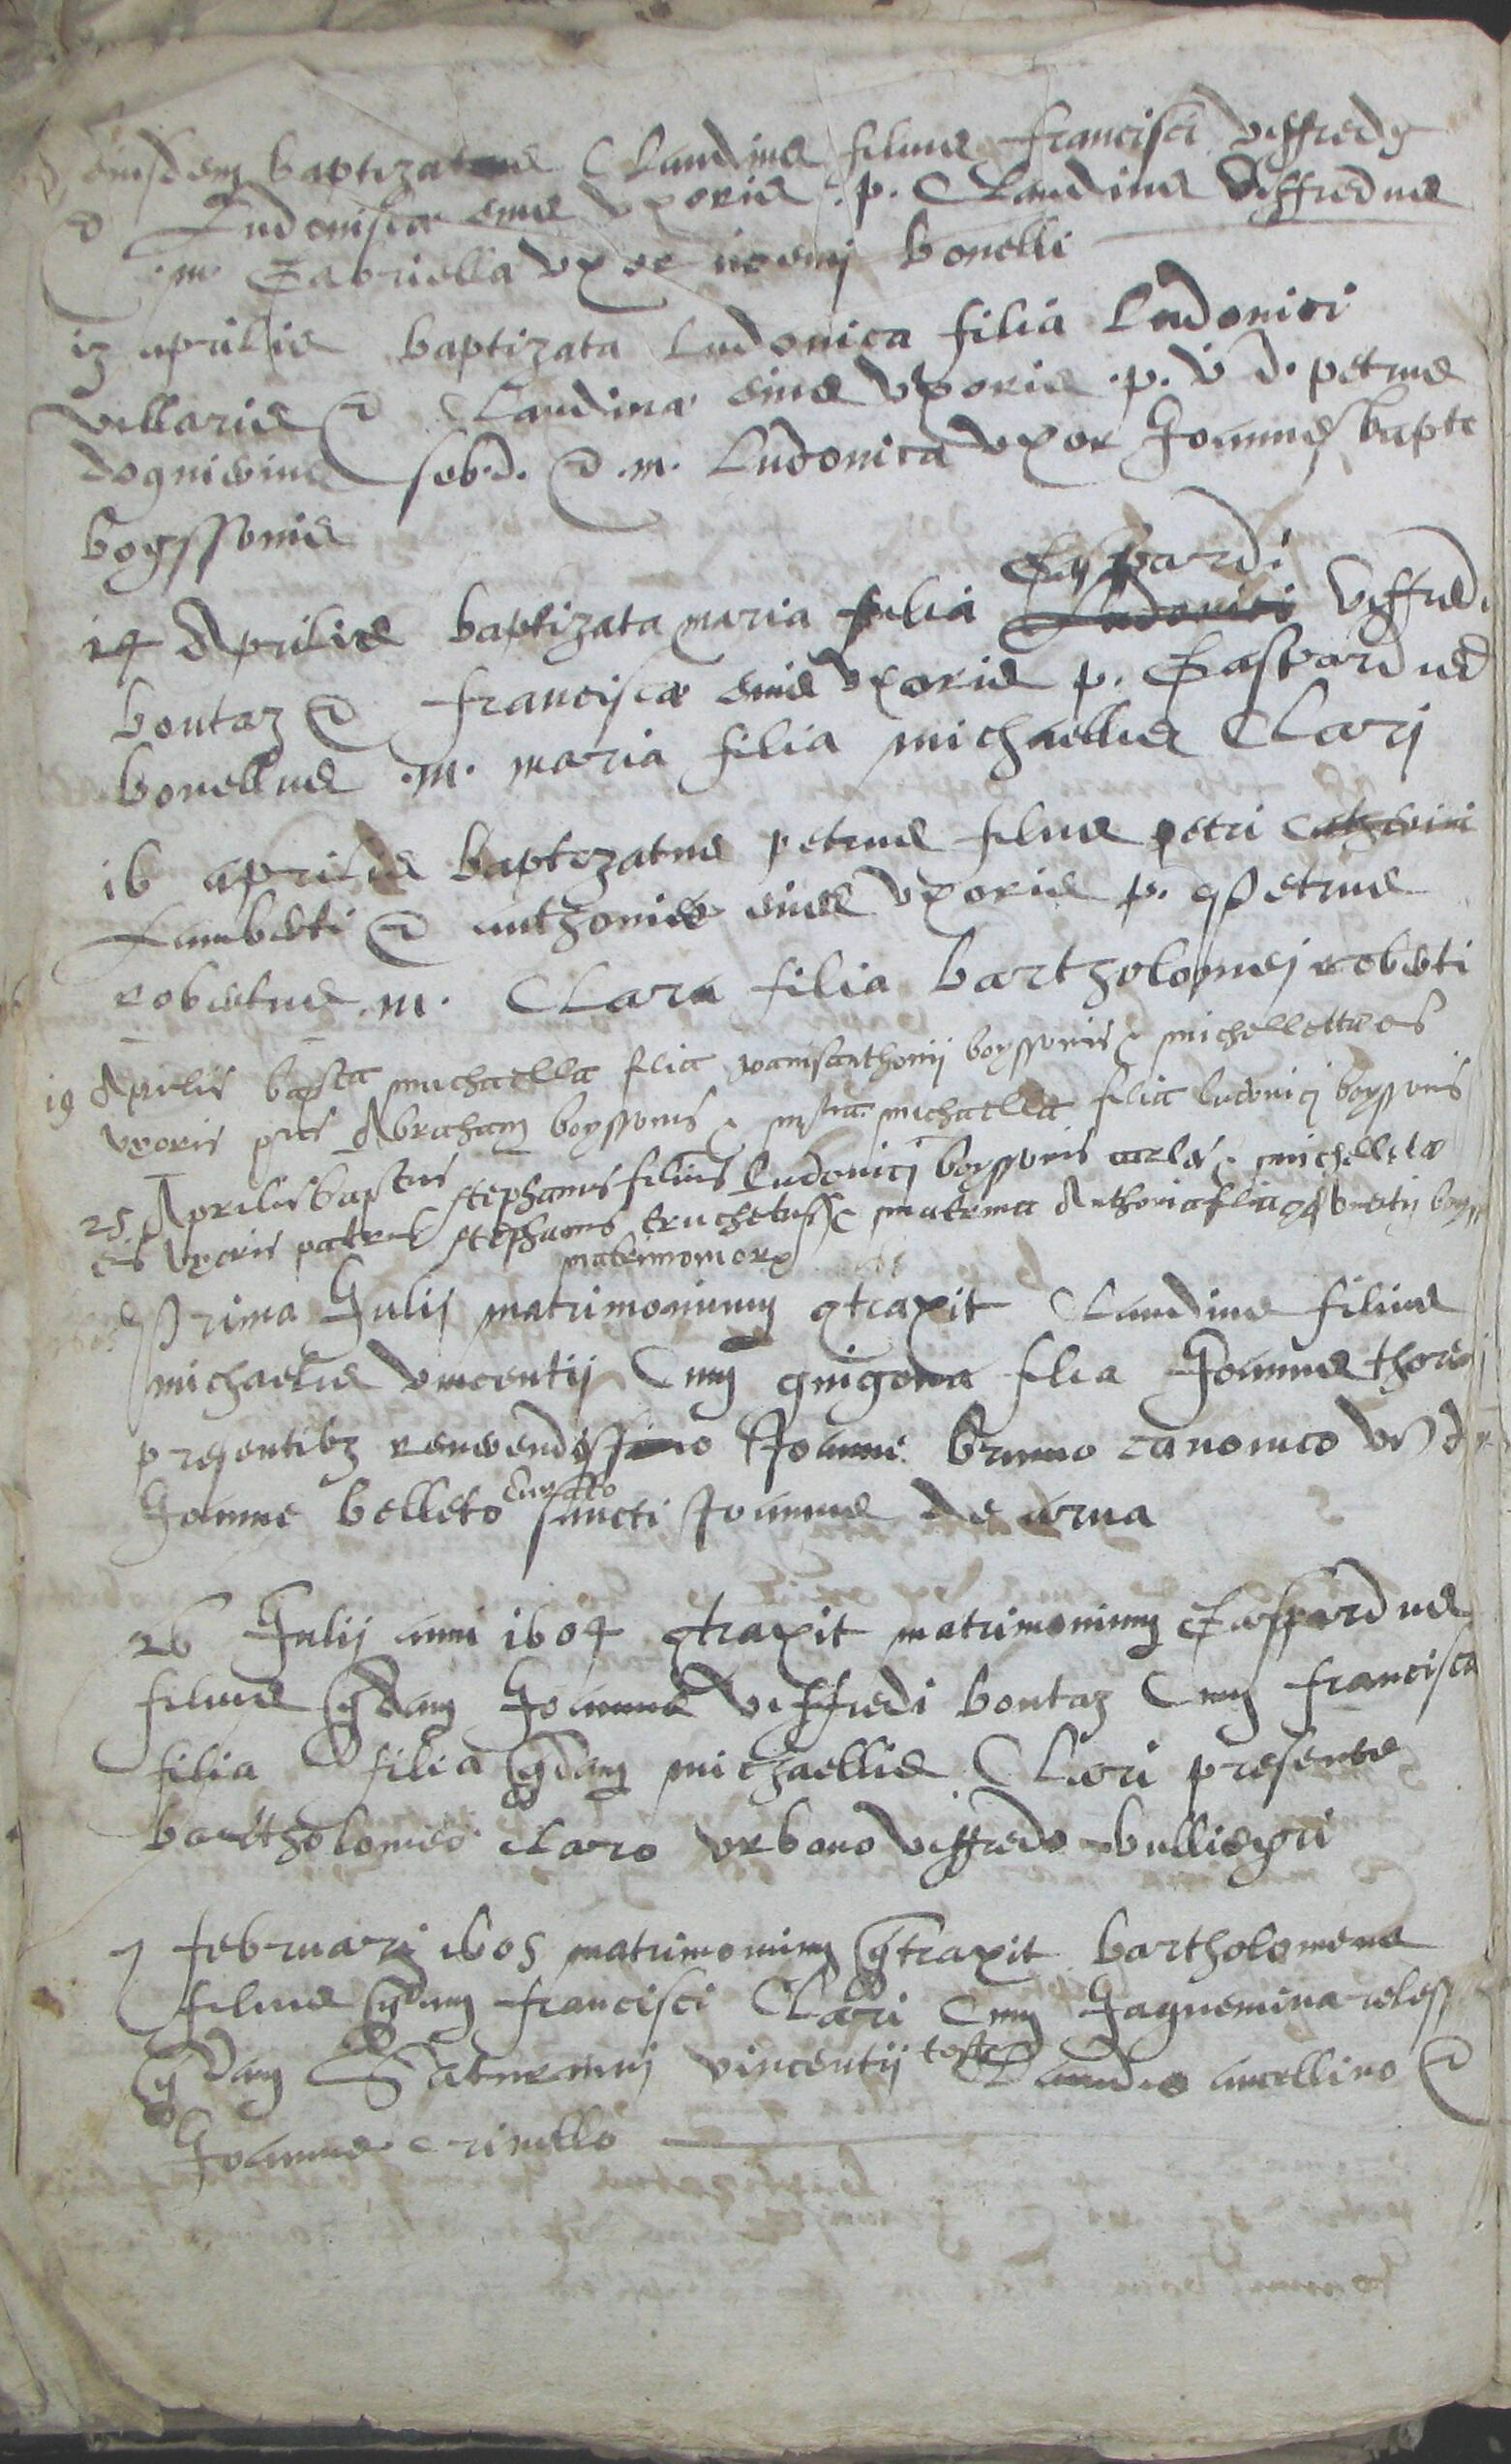 eiusdem baptizatus Claudius filius francisci Viffredi
& Ludovisiæ eius uxoris .p. Claudius Viffredus
.m. Gabriella uxor bonelli
13 aprilis baptizata Ludovica filia Ludovici
villaris & Claudinæ eius uxoris .p. v d. petrus
sebd. & .m. Ludovica uxor Joannis bapte
boyssonis
Gaspardi
14 Aprilis baptizata maria filia Ludovici Viffredi
boutaz & franciscæ eius uxoris p. Gaspardus
bonellus .m. maria filia michaellis Clarj
16 aprilis baptizatus petrus filius petri
Lamberti & anthoniæ eius uxoris p. petrus
robertus .m. Clara filia bartholomej roberti
19 Aprilis bapta michaella filia joannisanthonij boyssonis & michellettæ eis
uxoris pns Abraham boyssonis & mna michaella filia ludovicj boyssonis
25 Aprilis baptus stephanus filius Ludovicj boyssonis & michelletæ
eis uxoris patrin stephanus truchetus & matrina Anthonia filia
matrimoniorum
Prima Julij matrimonium contraxit Claudius filius
michaelis vincentij Cum guigona filia Joannis
presentibz reverendissimo Joanne bruno canonico
curato
Joanne belleto sancti Joannis de arva
26 Julij anni 1604 contraxit matrimonium Gaspardus
filius quondam Joannis Viffredi boutaz Cum francisca
filia filia quondam michaellis Clari presente
bartholomeo claro urbano Viffredo
7 februarij 1605 matrimonium contraxit bartholomeus
filius quondam francisci Clari Cum Jaquemina
quondam Saturninj vincentij teste Claudio ancellino &
Joanne crinello